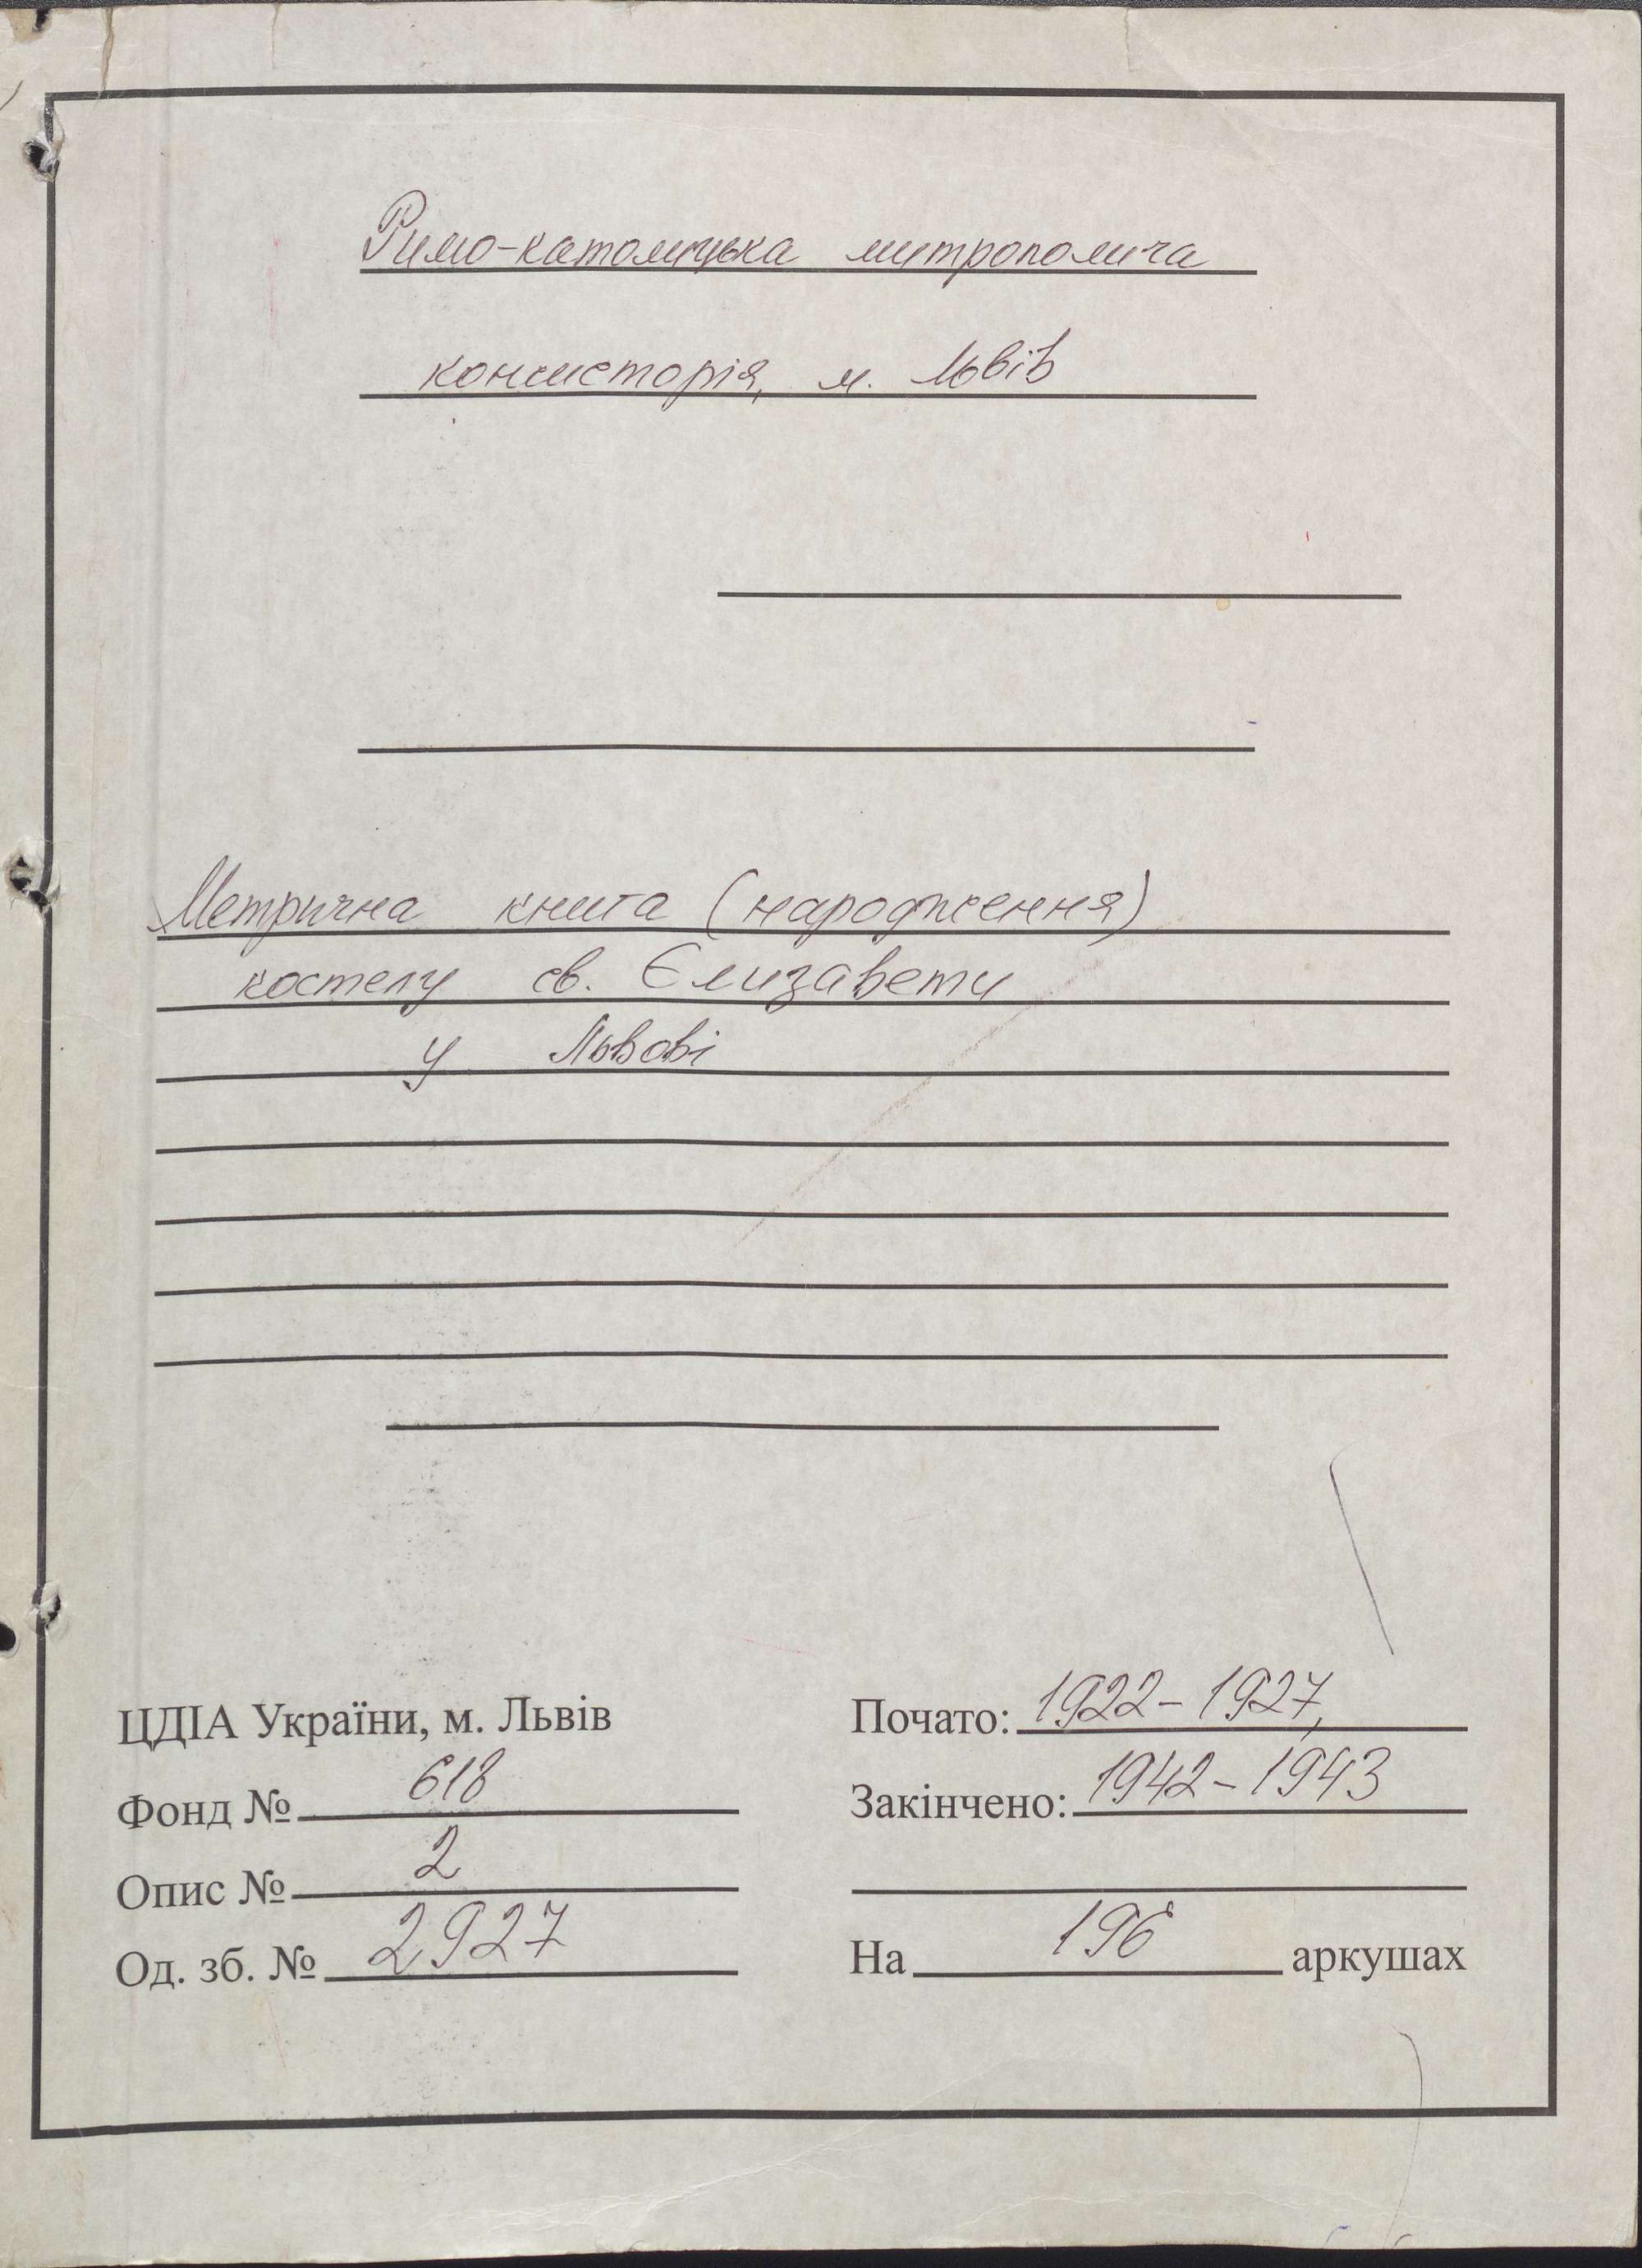 Римо-католицька митрополича
консисторія, м. Львів
Метрична книга (народження)
костелу св. Єлизавети
у Львові
ЦДІА України, м. Львів
Фонд № 618
Опис № 2
Од. зб. № 2927
Почато: 1922-1927,
Закінчено: 1942-1943
На 196 аркушах